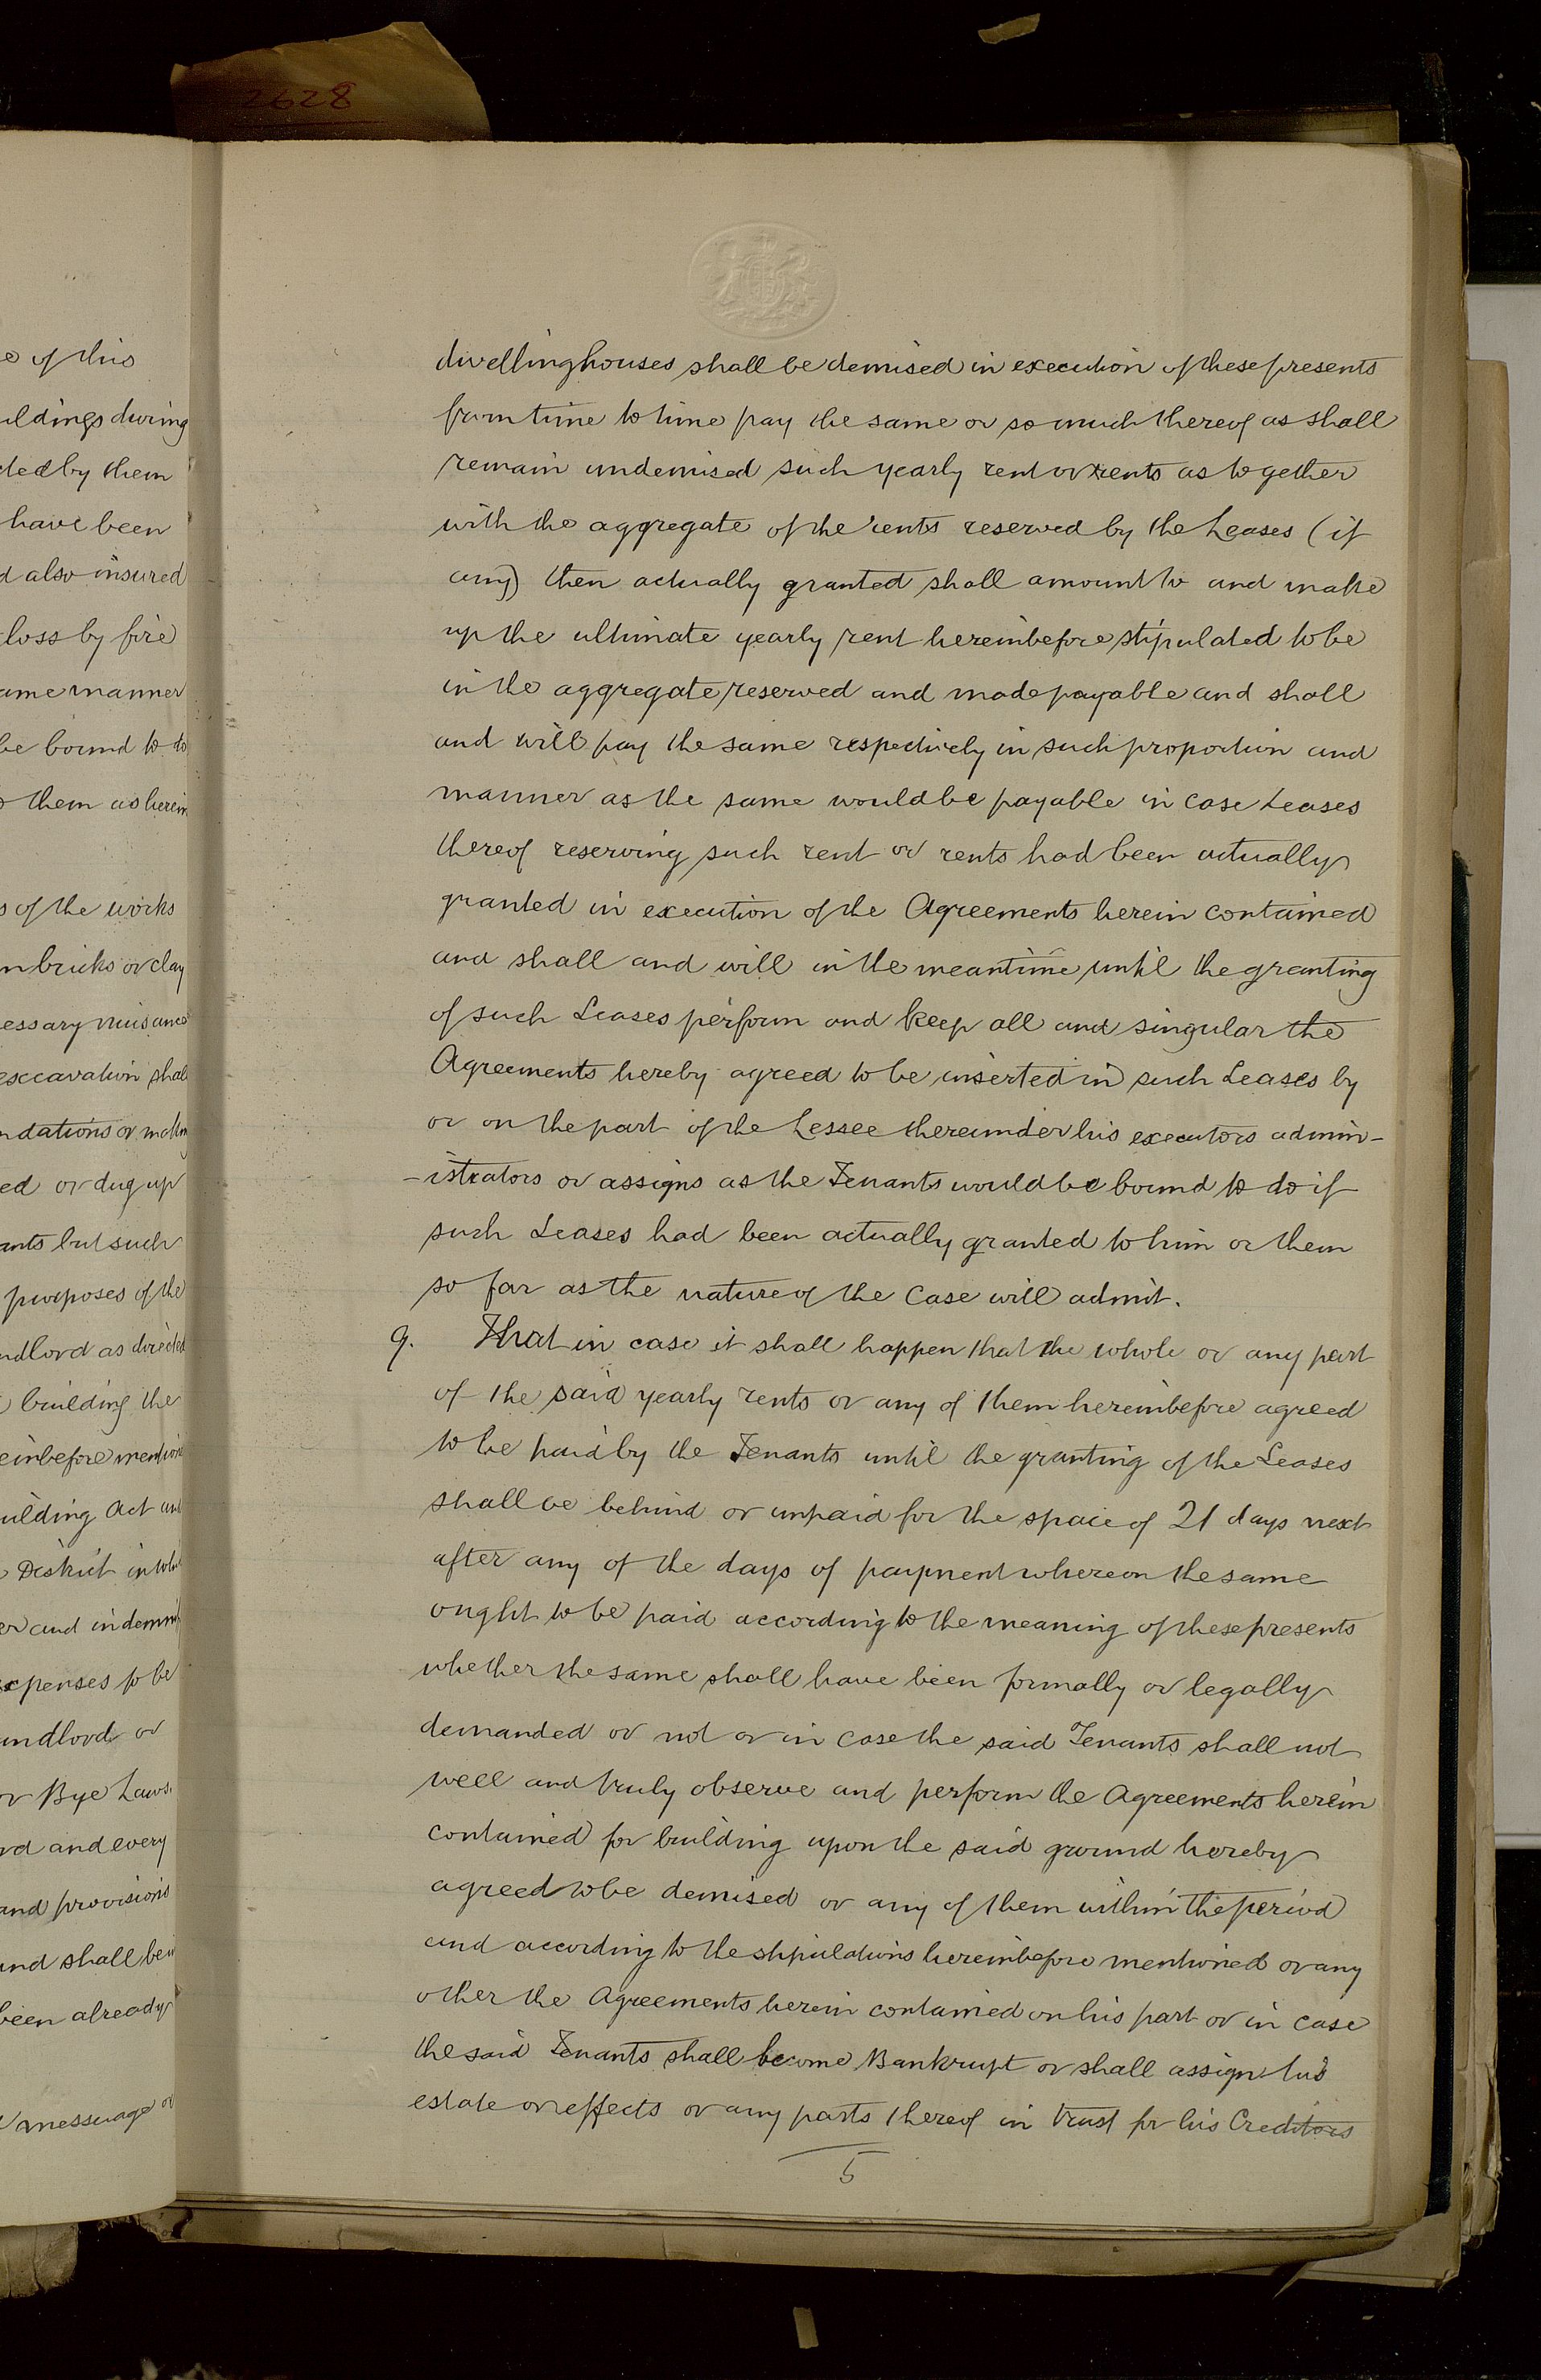 2628
e of this
uildings during
cted by them
have been
d also insured
loss by fire
ame manner
be bound to do
o them as herein
s of the works
n bricks or clay
essary nuisance
excavation shall
ndations or making
ed or dug up
ants but such
purposes of the
ndlord as directed
building the
einbefore mention
uilding Act and
District in wh
er and indemni
xpenses to be
andlord or
or Bye Laws
rd and every
and provisions
and shall be
been already
messuage or
dwellinghouses shall be demised in execution of these presents
from time to time pay the same or so much thereof as shall
remain undemised such yearly rent or rents as together
with the aggregate of the rents reserved by the Leases (if
any) then actually granted shall amount to and make
up the ultimate yearly rent hereinbefore stipulated to be
in the aggregate reserved and made payable and shall
and will pay the same respectively in such proportion and
manner as the same would be payable in case Leases
thereof reserving such rent or rents had been actually
granted in execution of the Agreements herein contained
and shall and will in the meantime until the granting
of such Leases perform and keep all and singular the
Agreements hereby agreed to be inserted in such Leases by
or on the part of the Lessee thereunder his executors admin-
-istrators or assigns as the Tenants would be bound to do if
such Leases had been actually granted to him or them
so far as the nature of the case will admit.
9. That in case it shall happen that the whole or any part
of the said yearly rents or any of them hereinbefore agreed
to be paid by the Tenants until the granting of the Leases
shall be behind or unpaid for the space of 21 days next
after any of the days of payment whereon the same
ought to be paid according to the meaning of these presents
whether the same shall have been formally or legally
demanded or not or in case the said Tenants shall not
well and truly observe and perform the Agreements herein
contained for building upon the said ground hereby
agreed to be demised or any of them within the period
and according to the stipulations hereinbefore mentioned or any
other the Agreements herein contained on his part or in case
the said Tenants shall become Bankrupt or shall assign his
estate or effects or any parts thereof in trust for his Creditors
5